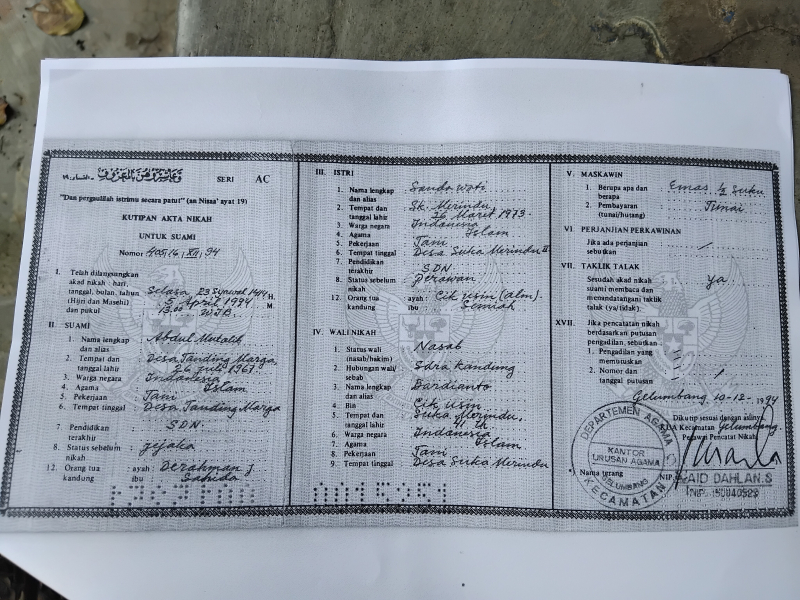 وَعَاشِرُوهُنَّ بِالْمَعْرُوفِ - النساء ١٩
SERI AC
"Dan pergaulilah istrimu secara patut" (an Nisaa' ayat 19)
KUTIPAN AKTA NIKAH
UNTUK SUAMI
Nomor 405/14/XII/94
I. Telah dilangsungkan
akad nikah : hari,
tanggal, bulan, tahun Selasa 23 Syawal 1414 H.
(Hijri dan Masehi) 5 April 1994 M.
dan pukul 13.00 WIB.
II. SUAMI
1. Nama lengkap : Abdul Mutalik
dan alias
2. Tempat dan : Desa Tanding Marga,
tanggal lahir 26 Juli 1967.
3. Warga negara : Indonesia
4. Agama : Islam
5. Pekerjaan : Tani
6. Tempat tinggal : Desa Tanding Marga
7. Pendidikan : SDN.
terakhir
8. Status sebelum : Jejaka
nikah
12. Orang tua : ayah : Derahman J.
kandung ibu : Sahida
III. ISTRI
1. Nama lengkap : Sanda Wati
dan alias
2. Tempat dan : Sk. Merindu,
tanggal lahir 26 Maret 1973.
3. Warga negara : Indonesia
4. Agama : Islam
5. Pekerjaan : Tani
6. Tempat tinggal : Desa Suka Merindu II
7. Pendidikan : SDN.
terakhir
8. Status sebelum : Perawan
nikah
12. Orang tua : ayah : Cik Usin (alm).
kandung ibu : Semiah
IV. WALI NIKAH
1. Status wali : Nasab
(nasab/hakim)
2. Hubungan wali/ : Sdra Kandung
sebab
3. Nama lengkap : Dardianto
dan alias
4. Bin : Cik Usin
5. Tempat dan : Suka Merindu,
tanggal lahir 41 th
6. Warga negara : Indonesia
7. Agama : Islam
8. Pekerjaan : Tani
9. Tempat tinggal : Desa Suka Merindu
V. MASKAWIN
1. Berupa apa dan : Emas ½ Suku
berapa
2. Pembayaran : Tunai
(tunai/hutang)
VI. PERJANJIAN PERKAWINAN
Jika ada perjanjian :
sebutkan
VII. TAKLIK TALAK
Sesudah akad nikah : ya.
suami membaca dan
menendatangani taklik
talak (ya/tidak):
XVII. Jika pencatatan nikah
berdasarkan putusan
pengadilan, sebutkan :
1. Pengadilan yang
memutuskan
2. Nomor dan
tanggal putusan
Gelumbang, 10-12-1994
Dikutip sesuai dengan aslinya
KUA Kecamatan Gelumbang.
Pegawai Pencatat Nikah,
DEPARTEMEN AGAMA
KANTOR
URUSAN AGAMA
GELUMBANG
KECAMATAN
Nama terang
NIP.
ZAID DAHLAN.S
NIP.